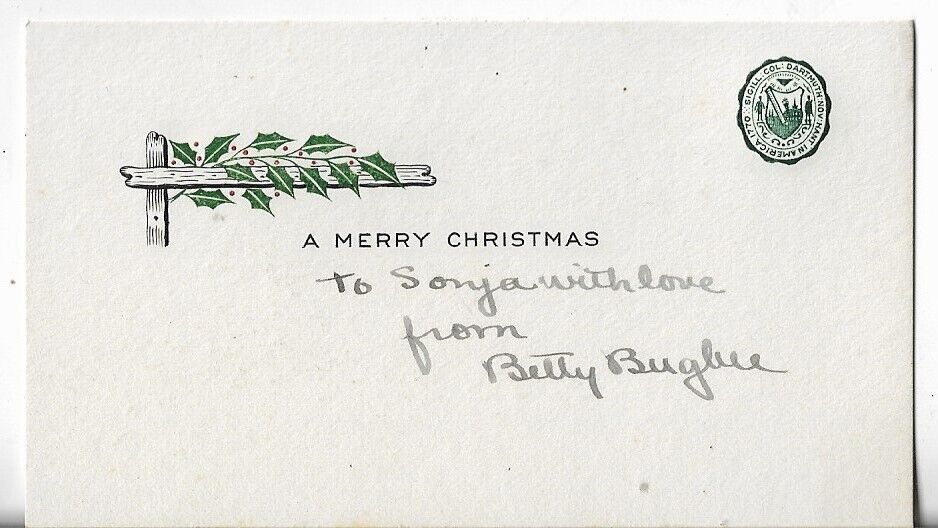 SIGILL: COL: DARTMUTH: NOV: HANT: IN AMERICA 1770
A MERRY CHRISTMAS
to Sonja with love
from
Betty Bugbee